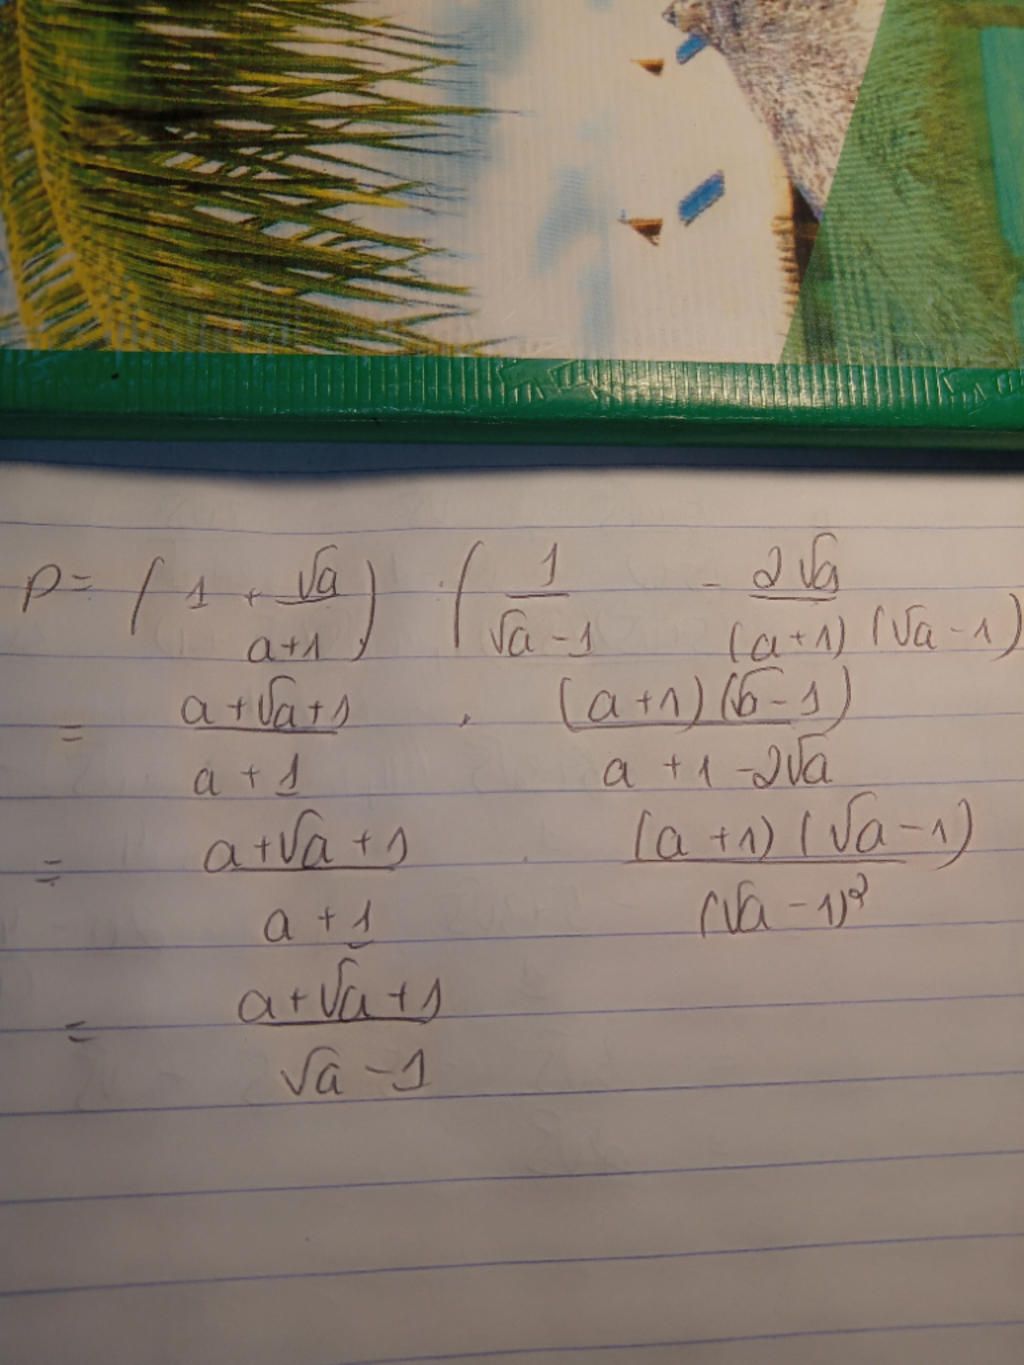 P = ( 1 + √a / a+1 ) : ( 1 / √a - 1 - 2√a / (a+1) (√a - 1)
= a+√a+1 / a + 1 . (a+1) (√a - 1) / a + 1 - 2√a
= a+√a + 1 / a + 1 . (a +1) (√a - 1) / (√a - 1)²
= a+√a + 1 / √a - 1